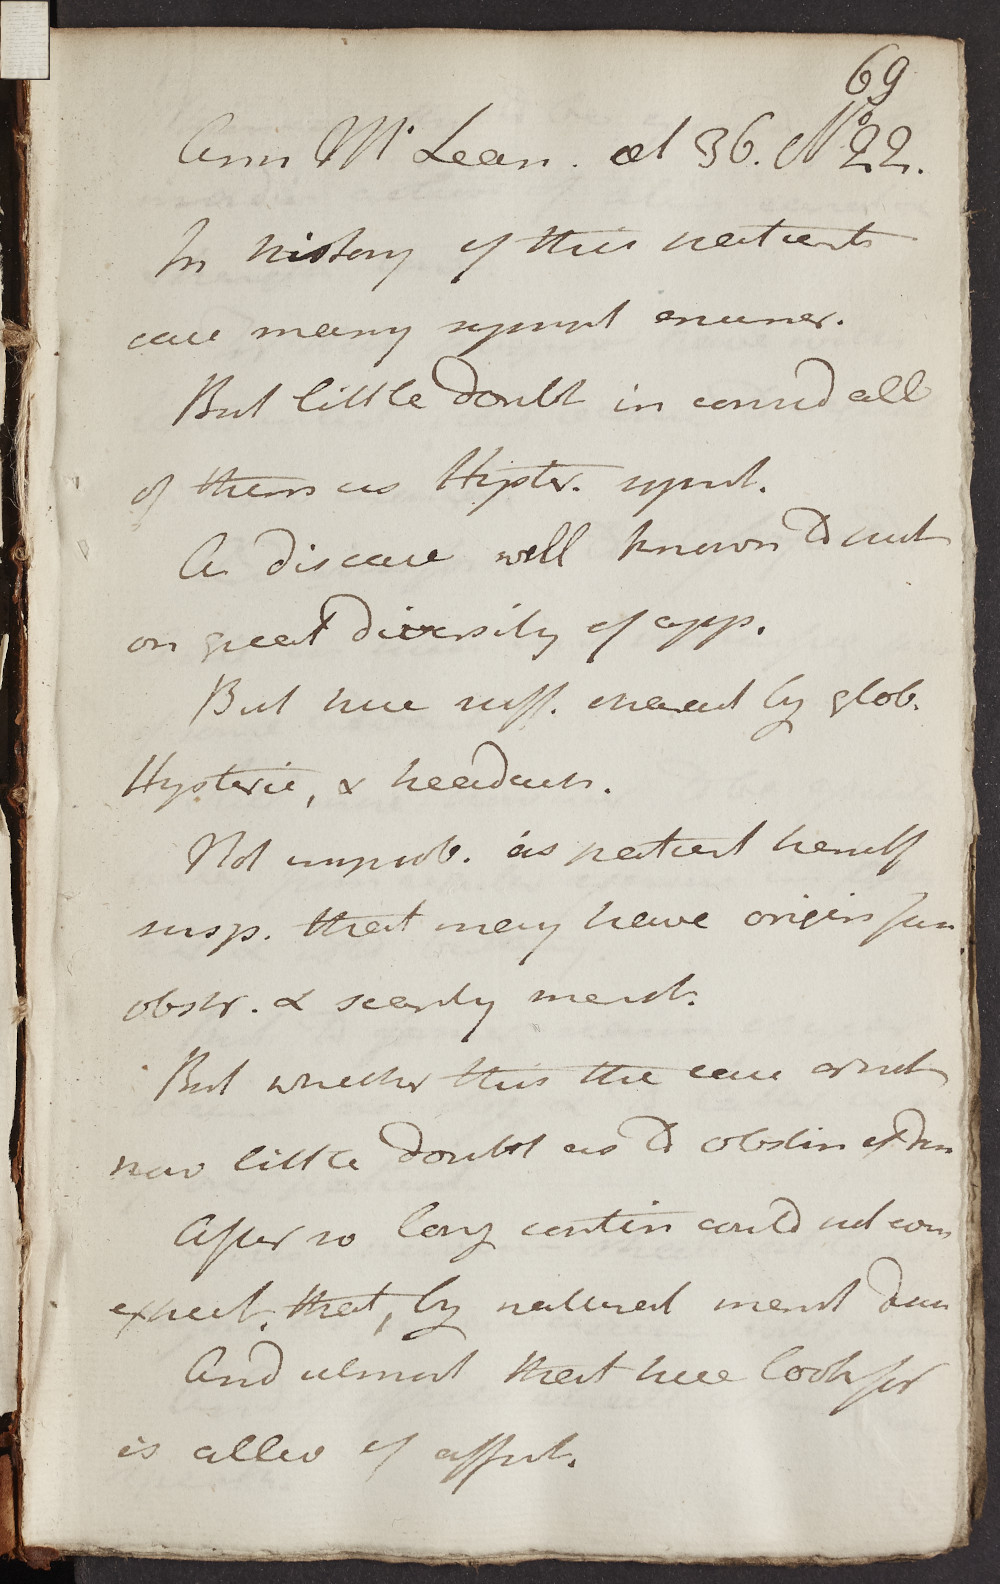 69
Ann Mc Lean. æt 36. No 22.
In history of this patients
case many sympt enumer.
But little doubt in consid all
of them as Hyster. sympt.
A disease well known to put
on great diversity of app.
But here suff. marked by glob.
Hysteric, & headach.
Not improb. as patient herself
susp. that may have origin from
obstr. & scanty menst.
But whether this the case or not
now little doubt as to obstin of
After so long contin could not
expect, that, by natural menst
And utmost that here look for
is allev of affect.